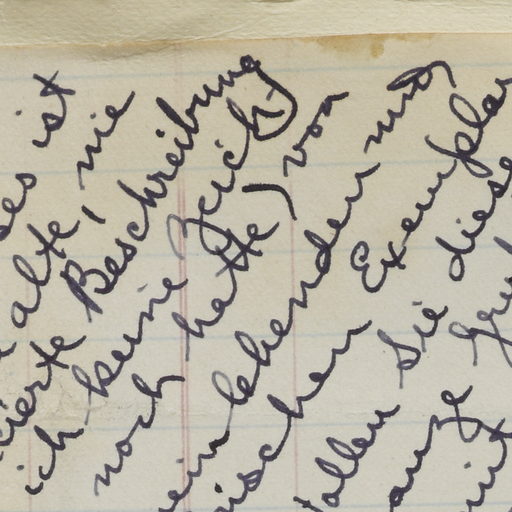 es ist
alte, nie
ierte Beschreibung
ich keine Zeich
noch hatte, von
ein lebenden und
ischen Exemplar
fallen Sie diese
ganze
mit